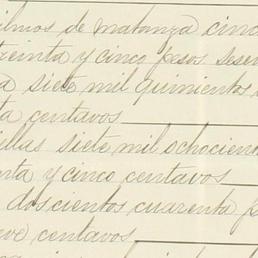 ilmos de matanza cinc
treinta y cinco pesos sesen
a siete mil quinientos s
ta centavos
illas siete mil ochocient
nta y cinco centavos
doscientos cuarenta p
ve centavos